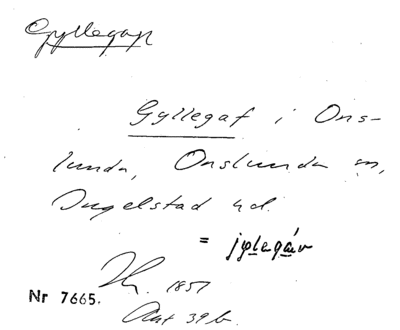 Gyllegap
Gyllegaf i Ons-
lunda, Onslunda sn,
Ingelstad hd.
= jylegáv
1851
Nr 7665.
Ant 39 b.